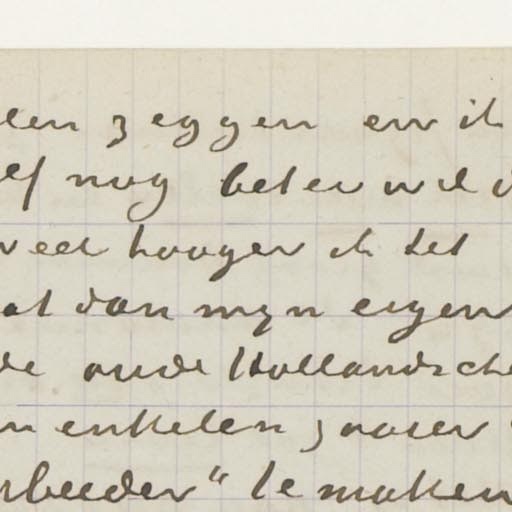 len zeggen en ik
elf nog beter wil
veel hooger ik dit
at dan mijn eigen
de oude Hollandsche
n enkelen zaaier
rbeeder" te maken